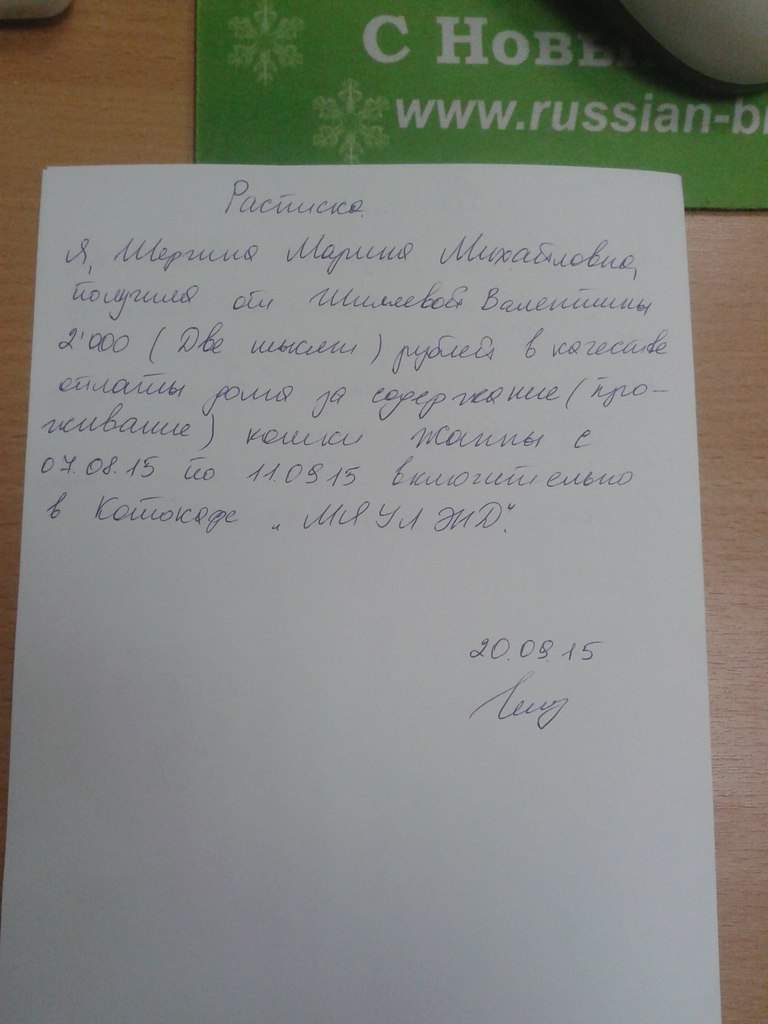 С Новы
www.russian-bi
Расписка.
Я, Шергина Марина Михайловна,
получила от Шиляевой Валентины
2'000 (Две тысячи) рублей в качестве
оплаты дома за содержание (про-
живание) кошки Жанны с
07.08.15 по 11.09.15 включительно
в Котокафе "МЯУЛЭНД".
20.09.15